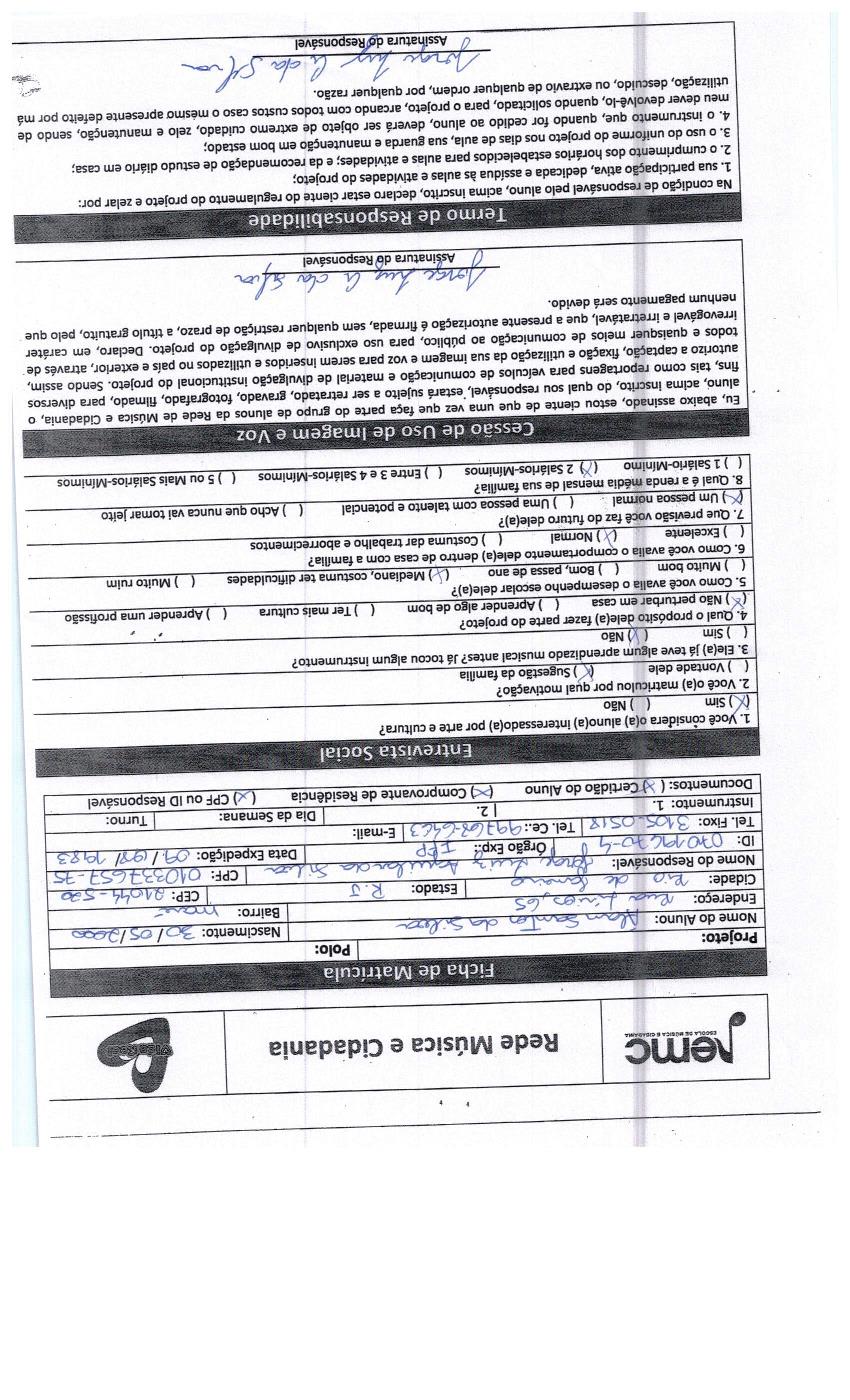 nemc
ESCOLA DE MÚSICA E CIDADANIA
Rede Música e Cidadania
Vida Real
Ficha de Matrícula
Projeto: Polo:
Nome do Aluno: Alan Santos da Silva Nascimento: 30/05/2000
Endereço: Rua Lírios, 65 Bairro: maré
Cidade: Rio de Janeiro Estado: R.J CEP: 21044-520
Nome do Responsável: Jorge Luiz Aguilar da Silva CPF: 010337657-75
ID: 07019670-4 Órgão Exp.: IFP Data Expedição: 09/ /1983
Tel. Fixo: 3105-0518 Tel. Ce.: 99768-6463 E-mail:
Instrumento: 1. 2. Dia da Semana: Turno:
Documentos: (X) Certidão do Aluno (X) Comprovante de Residência (X) CPF ou ID Responsável
Entrevista Social
1. Você considera o(a) aluno(a) interessado(a) por arte e cultura?
(X) Sim ( ) Não
2. Você o(a) matriculou por qual motivação?
( ) Vontade dele (X) Sugestão da família
3. Ele(a) já teve algum aprendizado musical antes? Já tocou algum instrumento?
( ) Sim (X) Não
4. Qual o propósito dele(a) fazer parte do projeto?
(X) Não perturbar em casa ( ) Aprender algo de bom ( ) Ter mais cultura ( ) Aprender uma profissão
5. Como você avalia o desempenho escolar dele(a)?
( ) Muito bom ( ) Bom, passa de ano (X) Mediano, costuma ter dificuldades ( ) Muito ruim
6. Como você avalia o comportamento dele(a) dentro de casa com a família?
( ) Excelente (X) Normal ( ) Costuma dar trabalho e aborrecimentos
7. Que previsão você faz do futuro dele(a)?
(X) Um pessoa normal ( ) Uma pessoa com talento e potencial ( ) Acho que nunca vai tomar jeito
8. Qual é a renda média mensal de sua família?
( ) 1 Salário-Mínimo (X) 2 Salários-Mínimos ( ) Entre 3 e 4 Salários-Mínimos ( ) 5 ou Mais Salários-Mínimos
Cessão de Uso de Imagem e Voz
Eu, abaixo assinado, estou ciente de que uma vez que faça parte do grupo de alunos da Rede de Música e Cidadania, o
aluno, acima inscrito, do qual sou responsável, estará sujeito a ser retratado, gravado, fotografado, filmado, para diversos
fins, tais como reportagens para veículos de comunicação e material de divulgação institucional do projeto. Sendo assim,
autorizo a captação, fixação e utilização da sua imagem e voz para serem inseridos e utilizados no país e exterior, através de
todos e quaisquer meios de comunicação ao público, para uso exclusivo de divulgação do projeto. Declaro, em caráter
irrevogável e irretratável, que a presente autorização é firmada, sem qualquer restrição de prazo, a título gratuito, pelo que
nenhum pagamento será devido.
Jorge Luiz A da Silva
Assinatura do Responsável
Termo de Responsabilidade
Na condição de responsável pelo aluno, acima inscrito, declaro estar ciente do regulamento do projeto e zelar por:
1. sua participação ativa, dedicada e assídua às aulas e atividades do projeto;
2. o cumprimento dos horários estabelecidos para aulas e atividades; e da recomendação de estudo diário em casa;
3. o uso do uniforme do projeto nos dias de aula, sua guarda e manutenção em bom estado;
4. o instrumento que, quando for cedido ao aluno, deverá ser objeto de extremo cuidado, zelo e manutenção, sendo de
meu dever devolvê-lo, quando solicitado, para o projeto, arcando com todos custos caso o mesmo apresente defeito por má
utilização, descuido, ou extravio de qualquer ordem, por qualquer razão.
Jorge Luiz A da Silva
Assinatura do Responsável